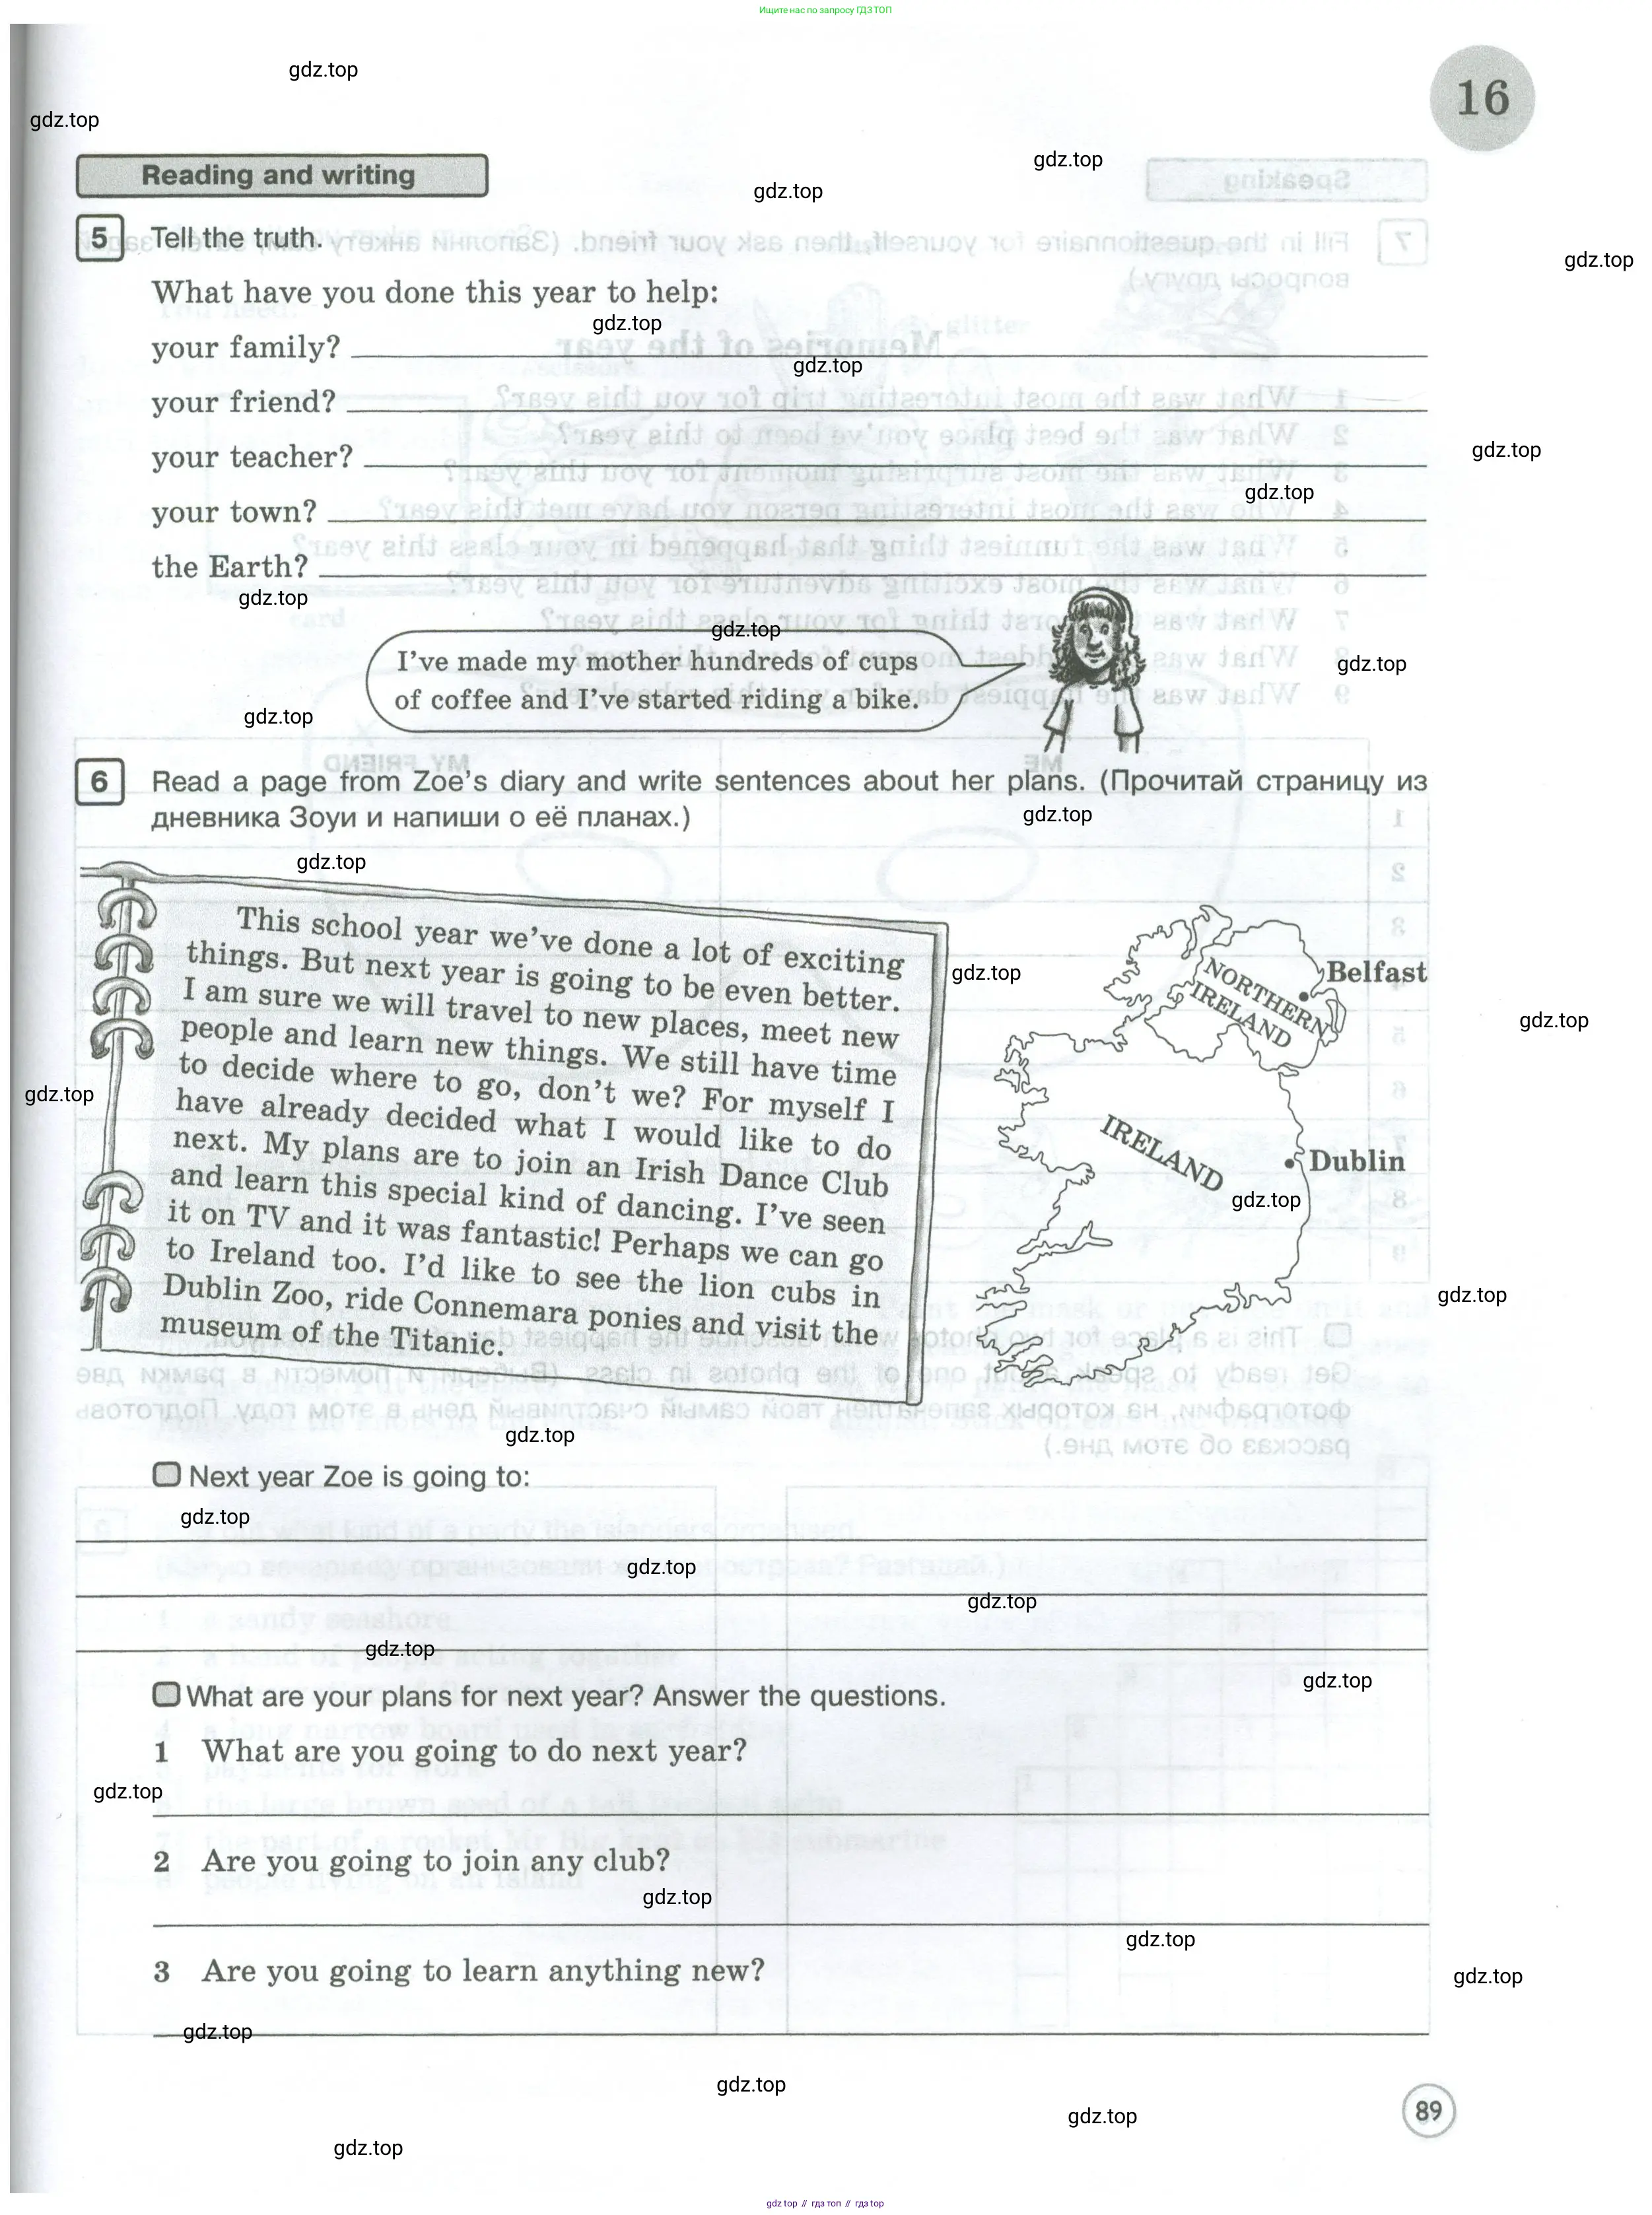 Ищите нас по запросу ГДЗ ТОП
gdz.top
16
gdz.top
gdz.top
Reading and writing
gdz.top
5 Tell the truth.
gdz.top
What have you done this year to help:
gdz.top
your family?
gdz.top
your friend?
gdz.top
your teacher?
gdz.top
your town?
the Earth?
gdz.top
gdz.top
I've made my mother hundreds of cups
of coffee and I've started riding a bike.
gdz.top
gdz.top
6 Read a page from Zoe's diary and write sentences about her plans. (Прочитай страницу из
дневника Зоуи и напиши о её планах.)
gdz.top
gdz.top
This school year we've done a lot of exciting
things. But next year is going to be even better.
I am sure we will travel to new places, meet new
people and learn new things. We still have time
to decide where to go, don't we? For myself I
have already decided what I would like to do
next. My plans are to join an Irish Dance Club
and learn this special kind of dancing. I've seen
it on TV and it was fantastic! Perhaps we can go
to Ireland too. I'd like to see the lion cubs in
Dublin Zoo, ride Connemara ponies and visit the
museum of the Titanic.
gdz.top
Belfast
NORTHERN
IRELAND
gdz.top
gdz.top
IRELAND
Dublin
gdz.top
gdz.top
gdz.top
Next year Zoe is going to:
gdz.top
gdz.top
gdz.top
gdz.top
gdz.top
What are your plans for next year? Answer the questions.
1 What are you going to do next year?
gdz.top
2 Are you going to join any club?
gdz.top
gdz.top
3 Are you going to learn anything new?
gdz.top
gdz.top
gdz.top
89
gdz.top
gdz.top
gdz top // гдз топ // гдз top